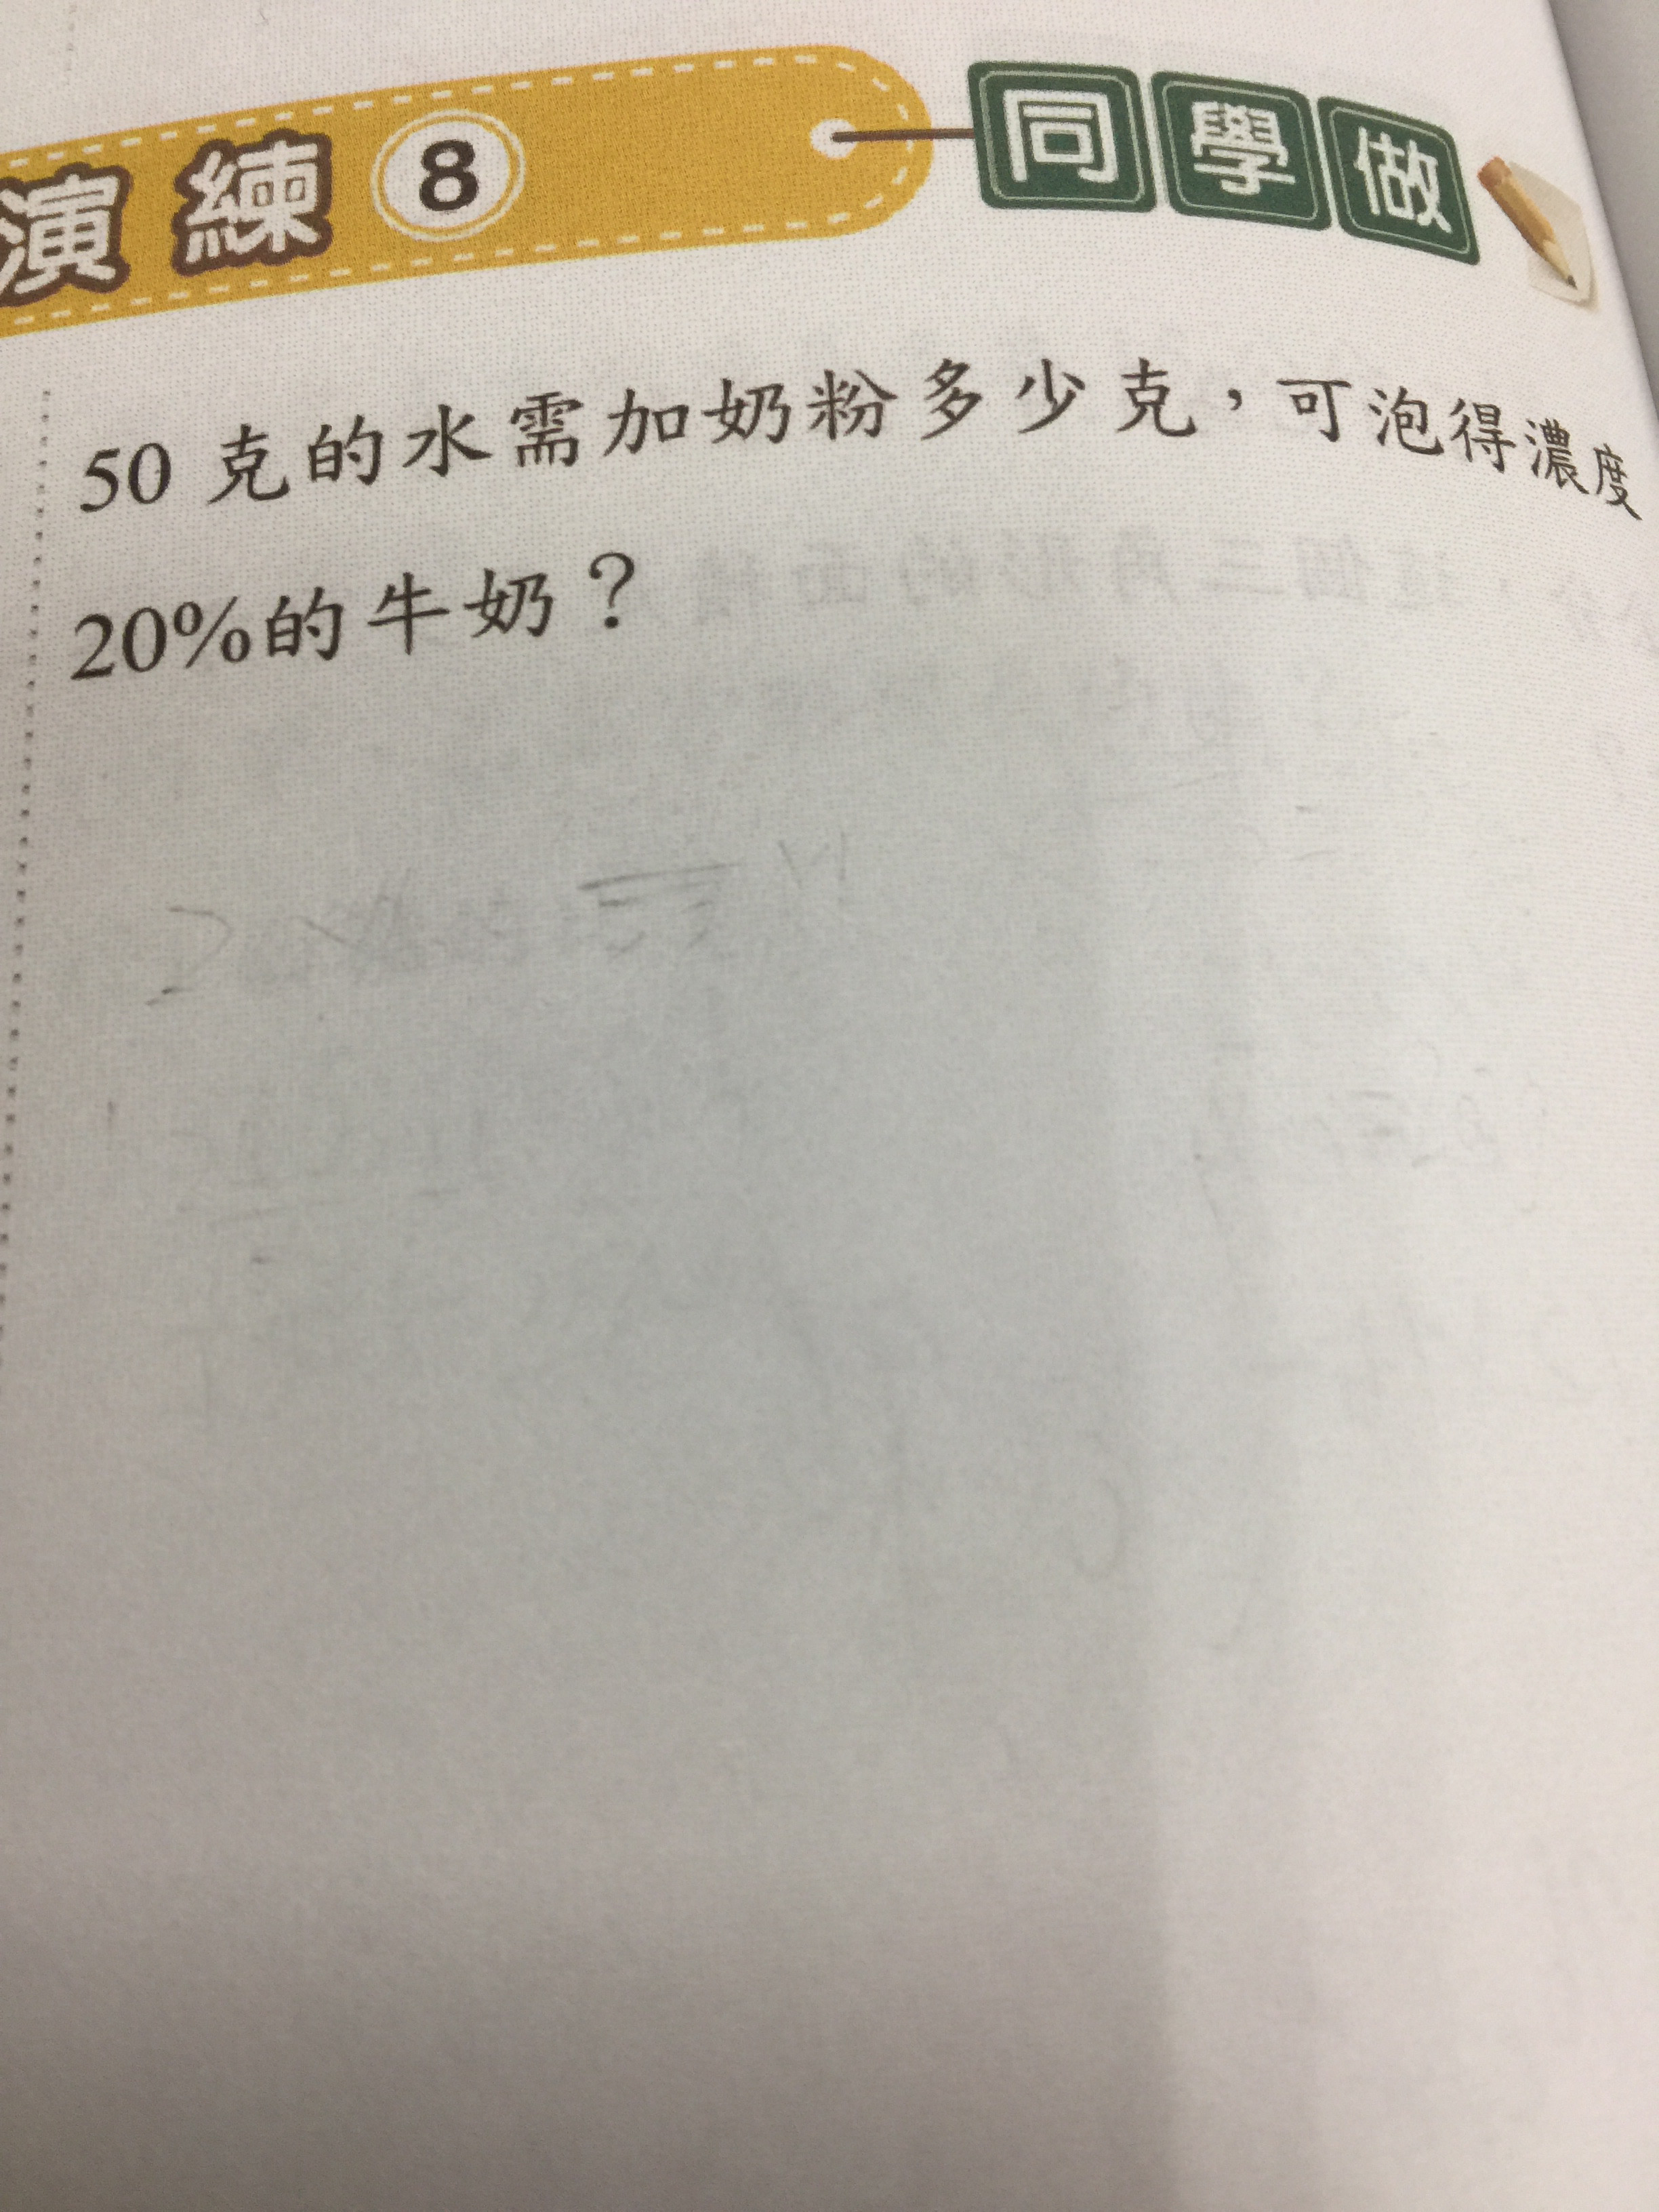 演練 8 同學做
50 克的水需加奶粉多少克，可泡得濃度
20%的牛奶？